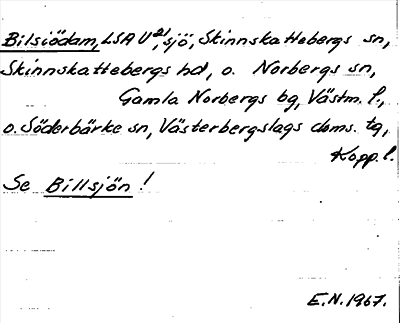 Bilsiödam, LSA U²¹, sjö, Skinnskattebergs sn,
Skinnskattebergs hd, o. Norbergs sn,
Gamla Norbergs bg, Västm. l.,
o. Söderbärke sn, Västerbergslags doms. tg,
Kopp. l.
Se Billsjön !
E.N. 1967.